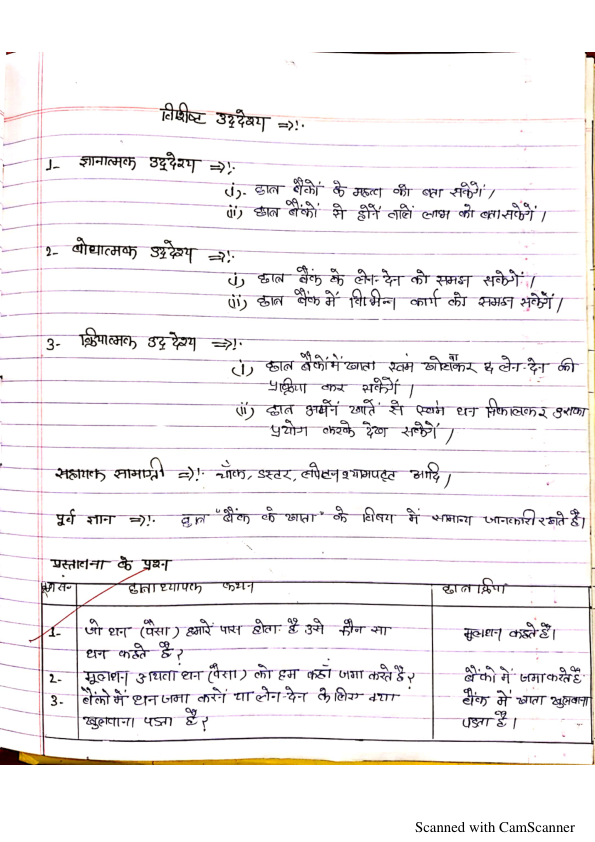 विशिष्ट उद्देश्य =>!.
1- ज्ञानात्मक उद्देश्य =>!.
(i)- छात्र बैंकों के महत्व को बता सकेगें।
(ii) छात्र बैंकों से होनें वाले लाभ को बता सकेगें।
2- बोधात्मक उद्देश्य =>!.
(i) छात्र बैंक के लेन-देन को समझ सकेगें।
(ii) छात्र बैंक में विभिन्न कार्य को समझ सकेगें।
3- क्रियात्मक उद्देश्य =>!.
(i) छात्र बैंकों में खाता स्वंम खोलकर व लेन-देन की
प्राक्रिया कर सकेगें।
(ii) छात्र अपनें खातें से स्वंम धन निकालकर उसका
प्रयोग करके देख सकेगें।
सहायक सामाग्री =>!. चॉक, डस्टर, लपेटन श्यामपट्ट आदि।
पूर्व ज्ञान =>!. "बैंक के खाता" के विषय में समान्य जानकारी रखते हैं।
प्रस्तावना के प्रश्न
क्र०सं० छात्राध्यापक कथन छात्र क्रिया
1- जो धन (पैसा) हमारें पास होता है उसे कौन सा मुलधन कहते हैं।
धन कहते हैं?
2- मूलधन अथवा धन (पैसा) को हम कहाँ जमा करते हैं? बैंको में जमा करते हैं
3- बैंको में धन जमा करनें या लेन-देन के लिए क्या बैंक में खाता खुलवाना
खुलवाना पड़ता हैं? पड़ता हैं।
Scanned with CamScanner